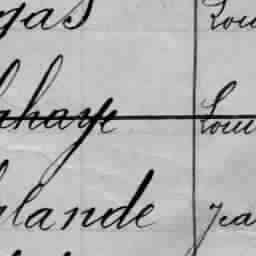 gas Lou
ahaye Lou
lande Jea